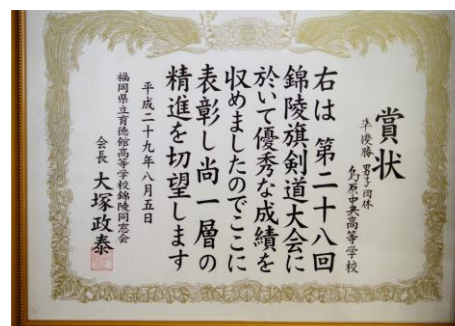 賞状
準優勝 男子団体
島原中央高等学校
右は 第二十八回
錦陵旗剣道大会に
於いて優秀な成績を
収めましたのでここに
表彰し尚一層の
精進を切望します
平成二十九年八月五日
福岡県立育徳館高等学校錦陵同窓会
会長 大塚政泰